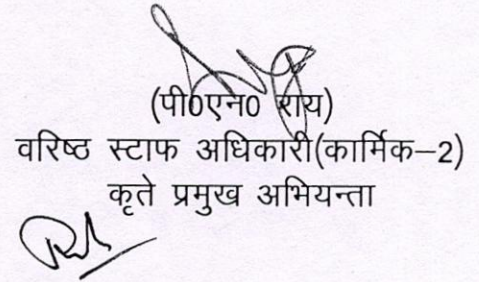 (पी0एन0 राय)
वरिष्ठ स्टाफ अधिकारी(कार्मिक–2)
कृते प्रमुख अभियन्ता